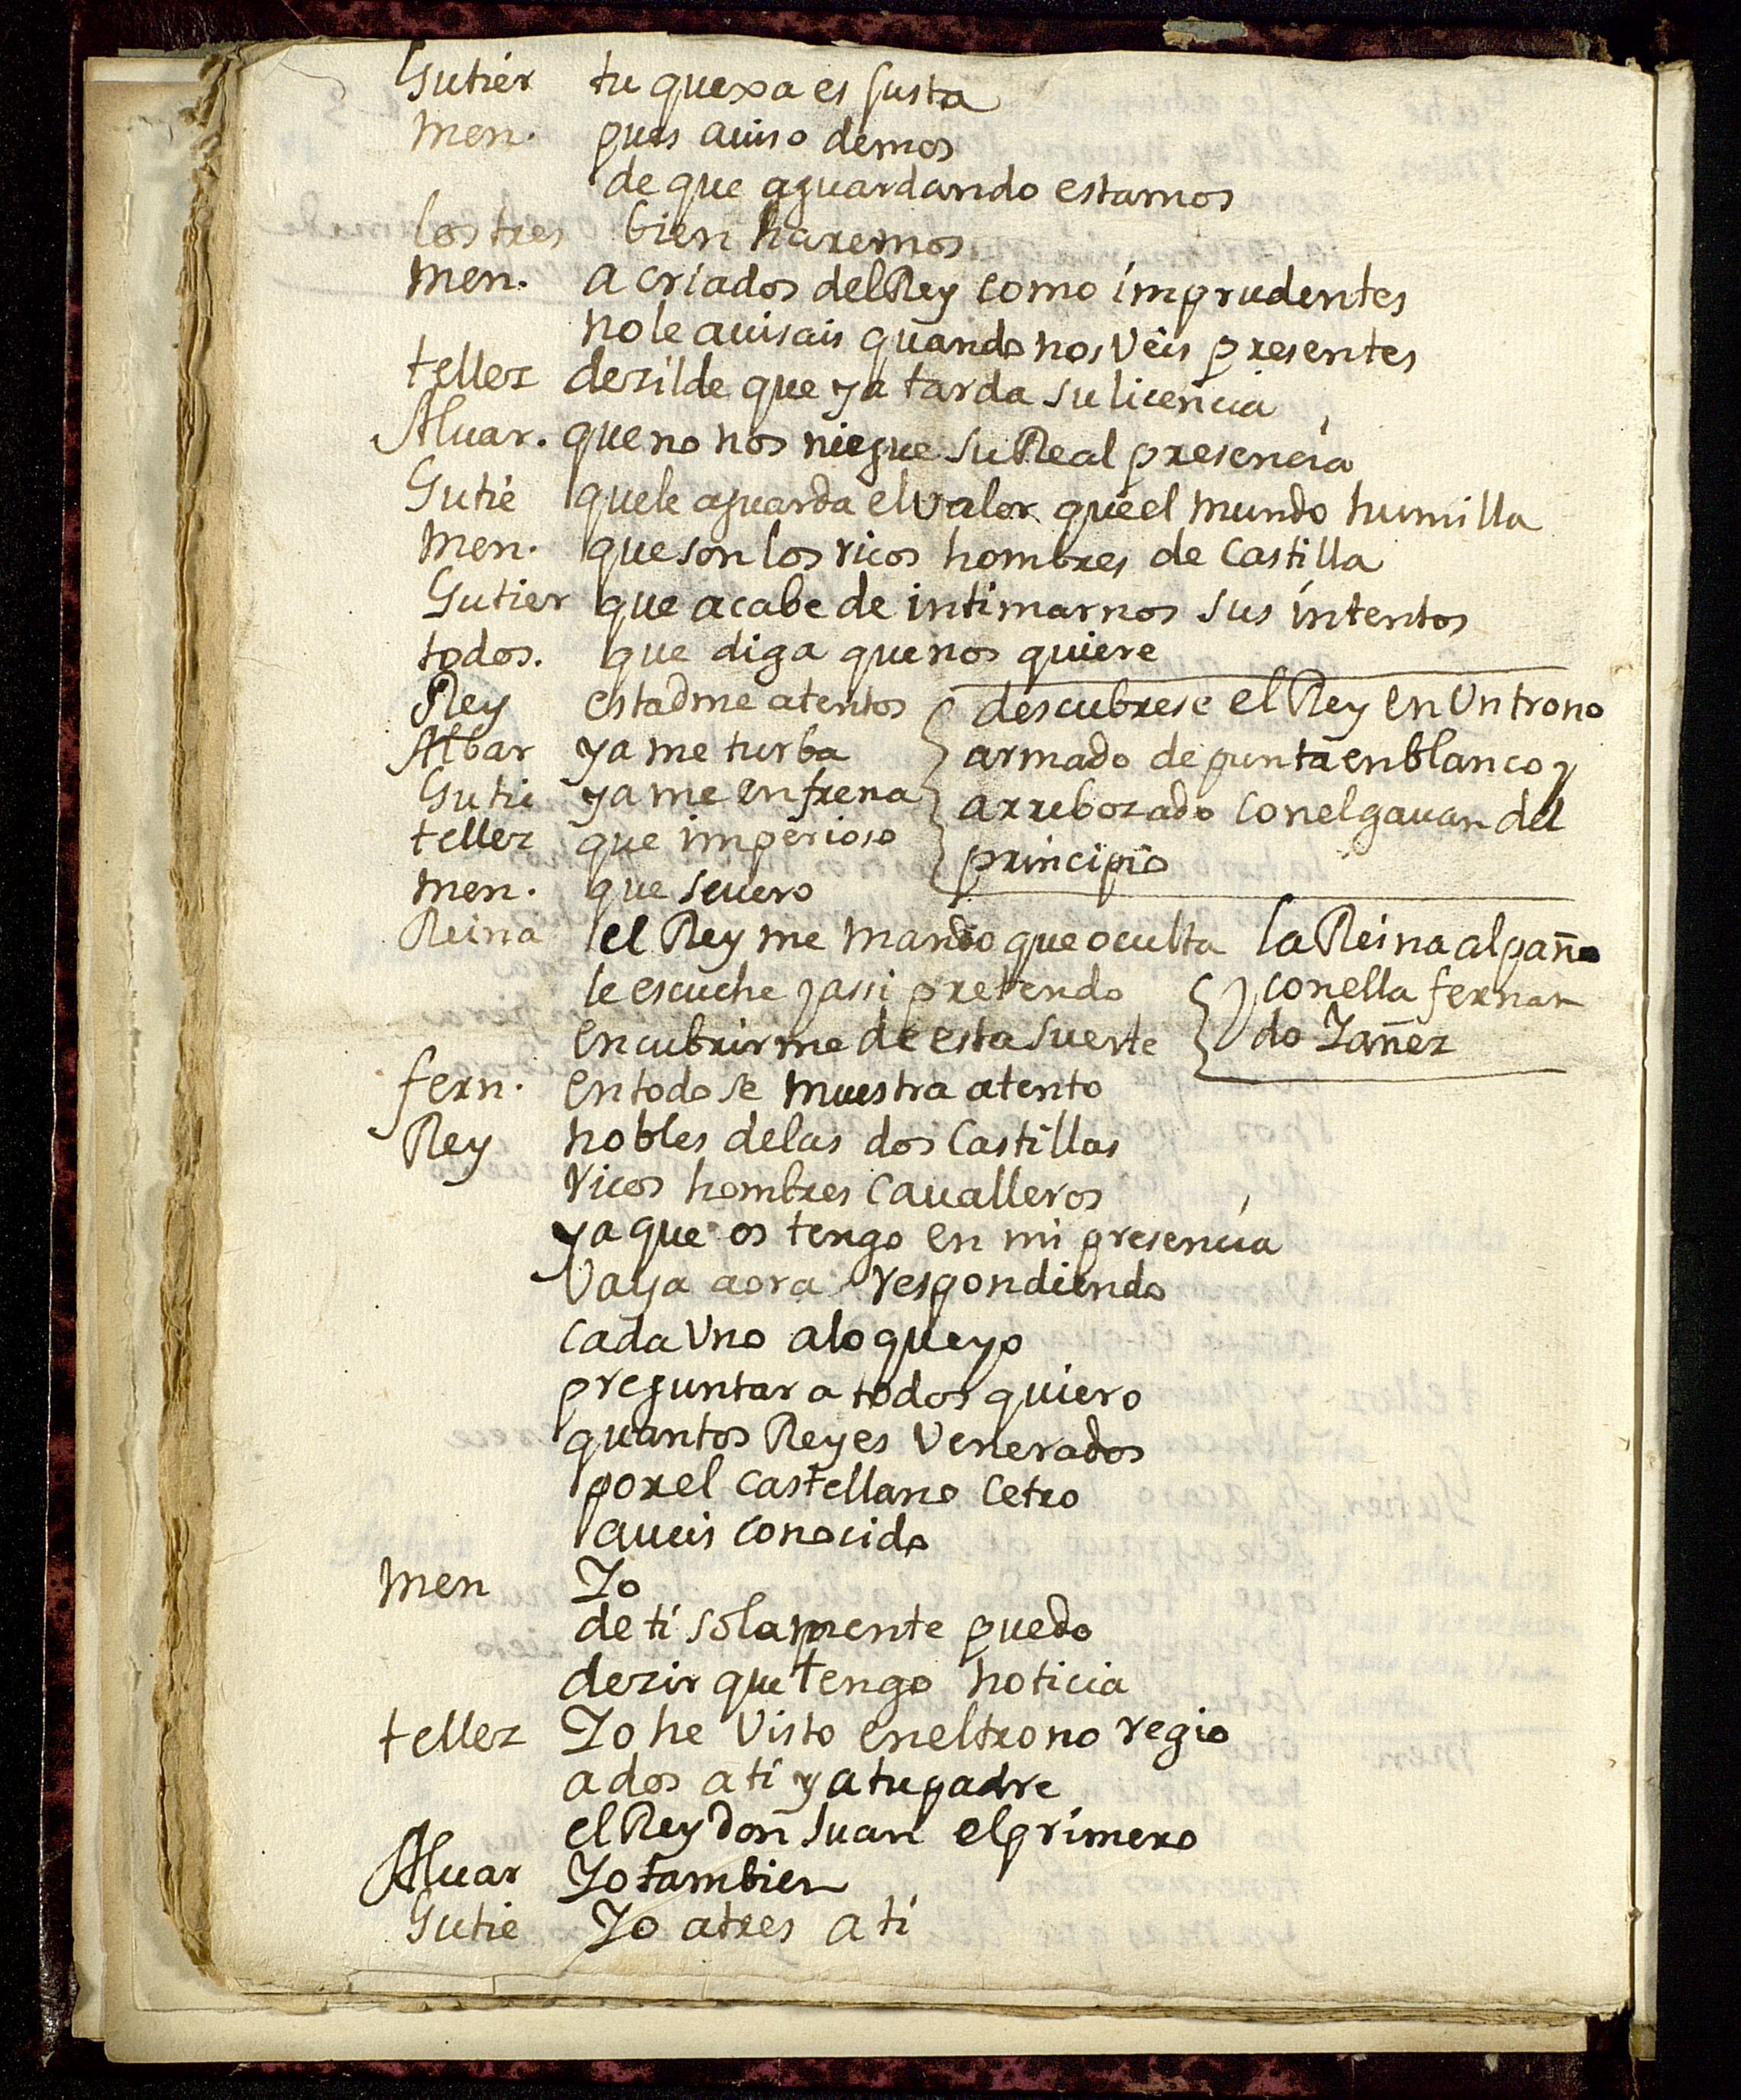 Gutier tu quexa es Justa
Men. pues auiso demos
de que aguardando estamos
los tres bien haremos
Men. a criados del Rey como imprudentes
no le auisais quando nos veis presentes
tellez dezilde que ya tarda su licencia
Aluar. que no nos niegue su Real presencia
Gutie que le aguarda el valor que el mundo humilla
Men. que son los ricos hombres de Castilla
Gutier que acabe de intimarnos sus intentos
todos. que diga que nos quiere
Rey estadme atentos
descubrese el Rey en Un trono
armado de punta en blanco y
arrebozado con el gauan del
principio
Albar ya me turba
Gutie ya me enfrena
tellez que imperioso
Men. que seuero
Reina el Rey me mando que oculta
le escuche y assi pretendo
encubrirme de esta suerte
la Reina al paño
y con ella fernan
do Yañez
fern. en todo se muestra atento
Rey nobles de las dos Castillas
ricos hombres Caualleros
ya que os tengo en mi presencia
Vaya aora respondiendo
Cada Uno a lo que yo
preguntar a todos quiero
quantos Reyes Venerados
por el Castellano Cetro
aueis conocido
Men Yo
de ti solamente puedo
dezir que tengo noticia
tellez Yo he Visto en el trono regio
a dos a ti y a tu padre
el Rey Don Juan el primero
Aluar Yo tambien
Gutie Yo a tres a ti